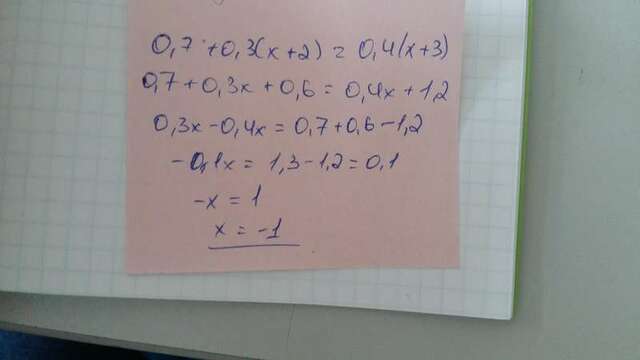 0,7 + 0,3(x+2) = 0,4(x+3)
0,7 + 0,3x + 0,6 = 0,4x + 1,2
0,3x - 0,4x = 0,7 + 0,6 - 1,2
-0,1x = 1,3 - 1,2 = 0,1
-x = 1
x = -1